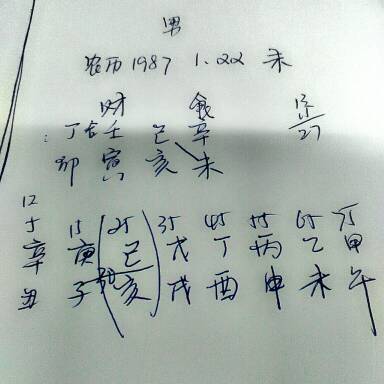 男
农历1987 1.22 未
财 食
丁 壬 己 辛
卯 寅 亥 未
27
12 15 25 35 45 55 65 75
辛 庚 己 戊 丁 丙 乙 甲
丑 子 亥 戌 酉 申 未 午